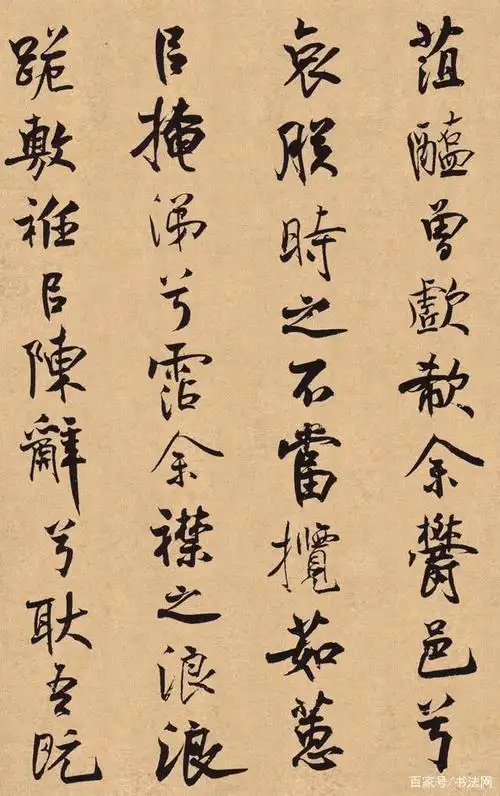 菹醢曾歔欷余鬱邑兮
哀朕時之不當攬茹蕙
㠯掩涕兮霑余襟之浪浪
跪敷衽㠯陳辭兮耿吾既
百家号/书法网